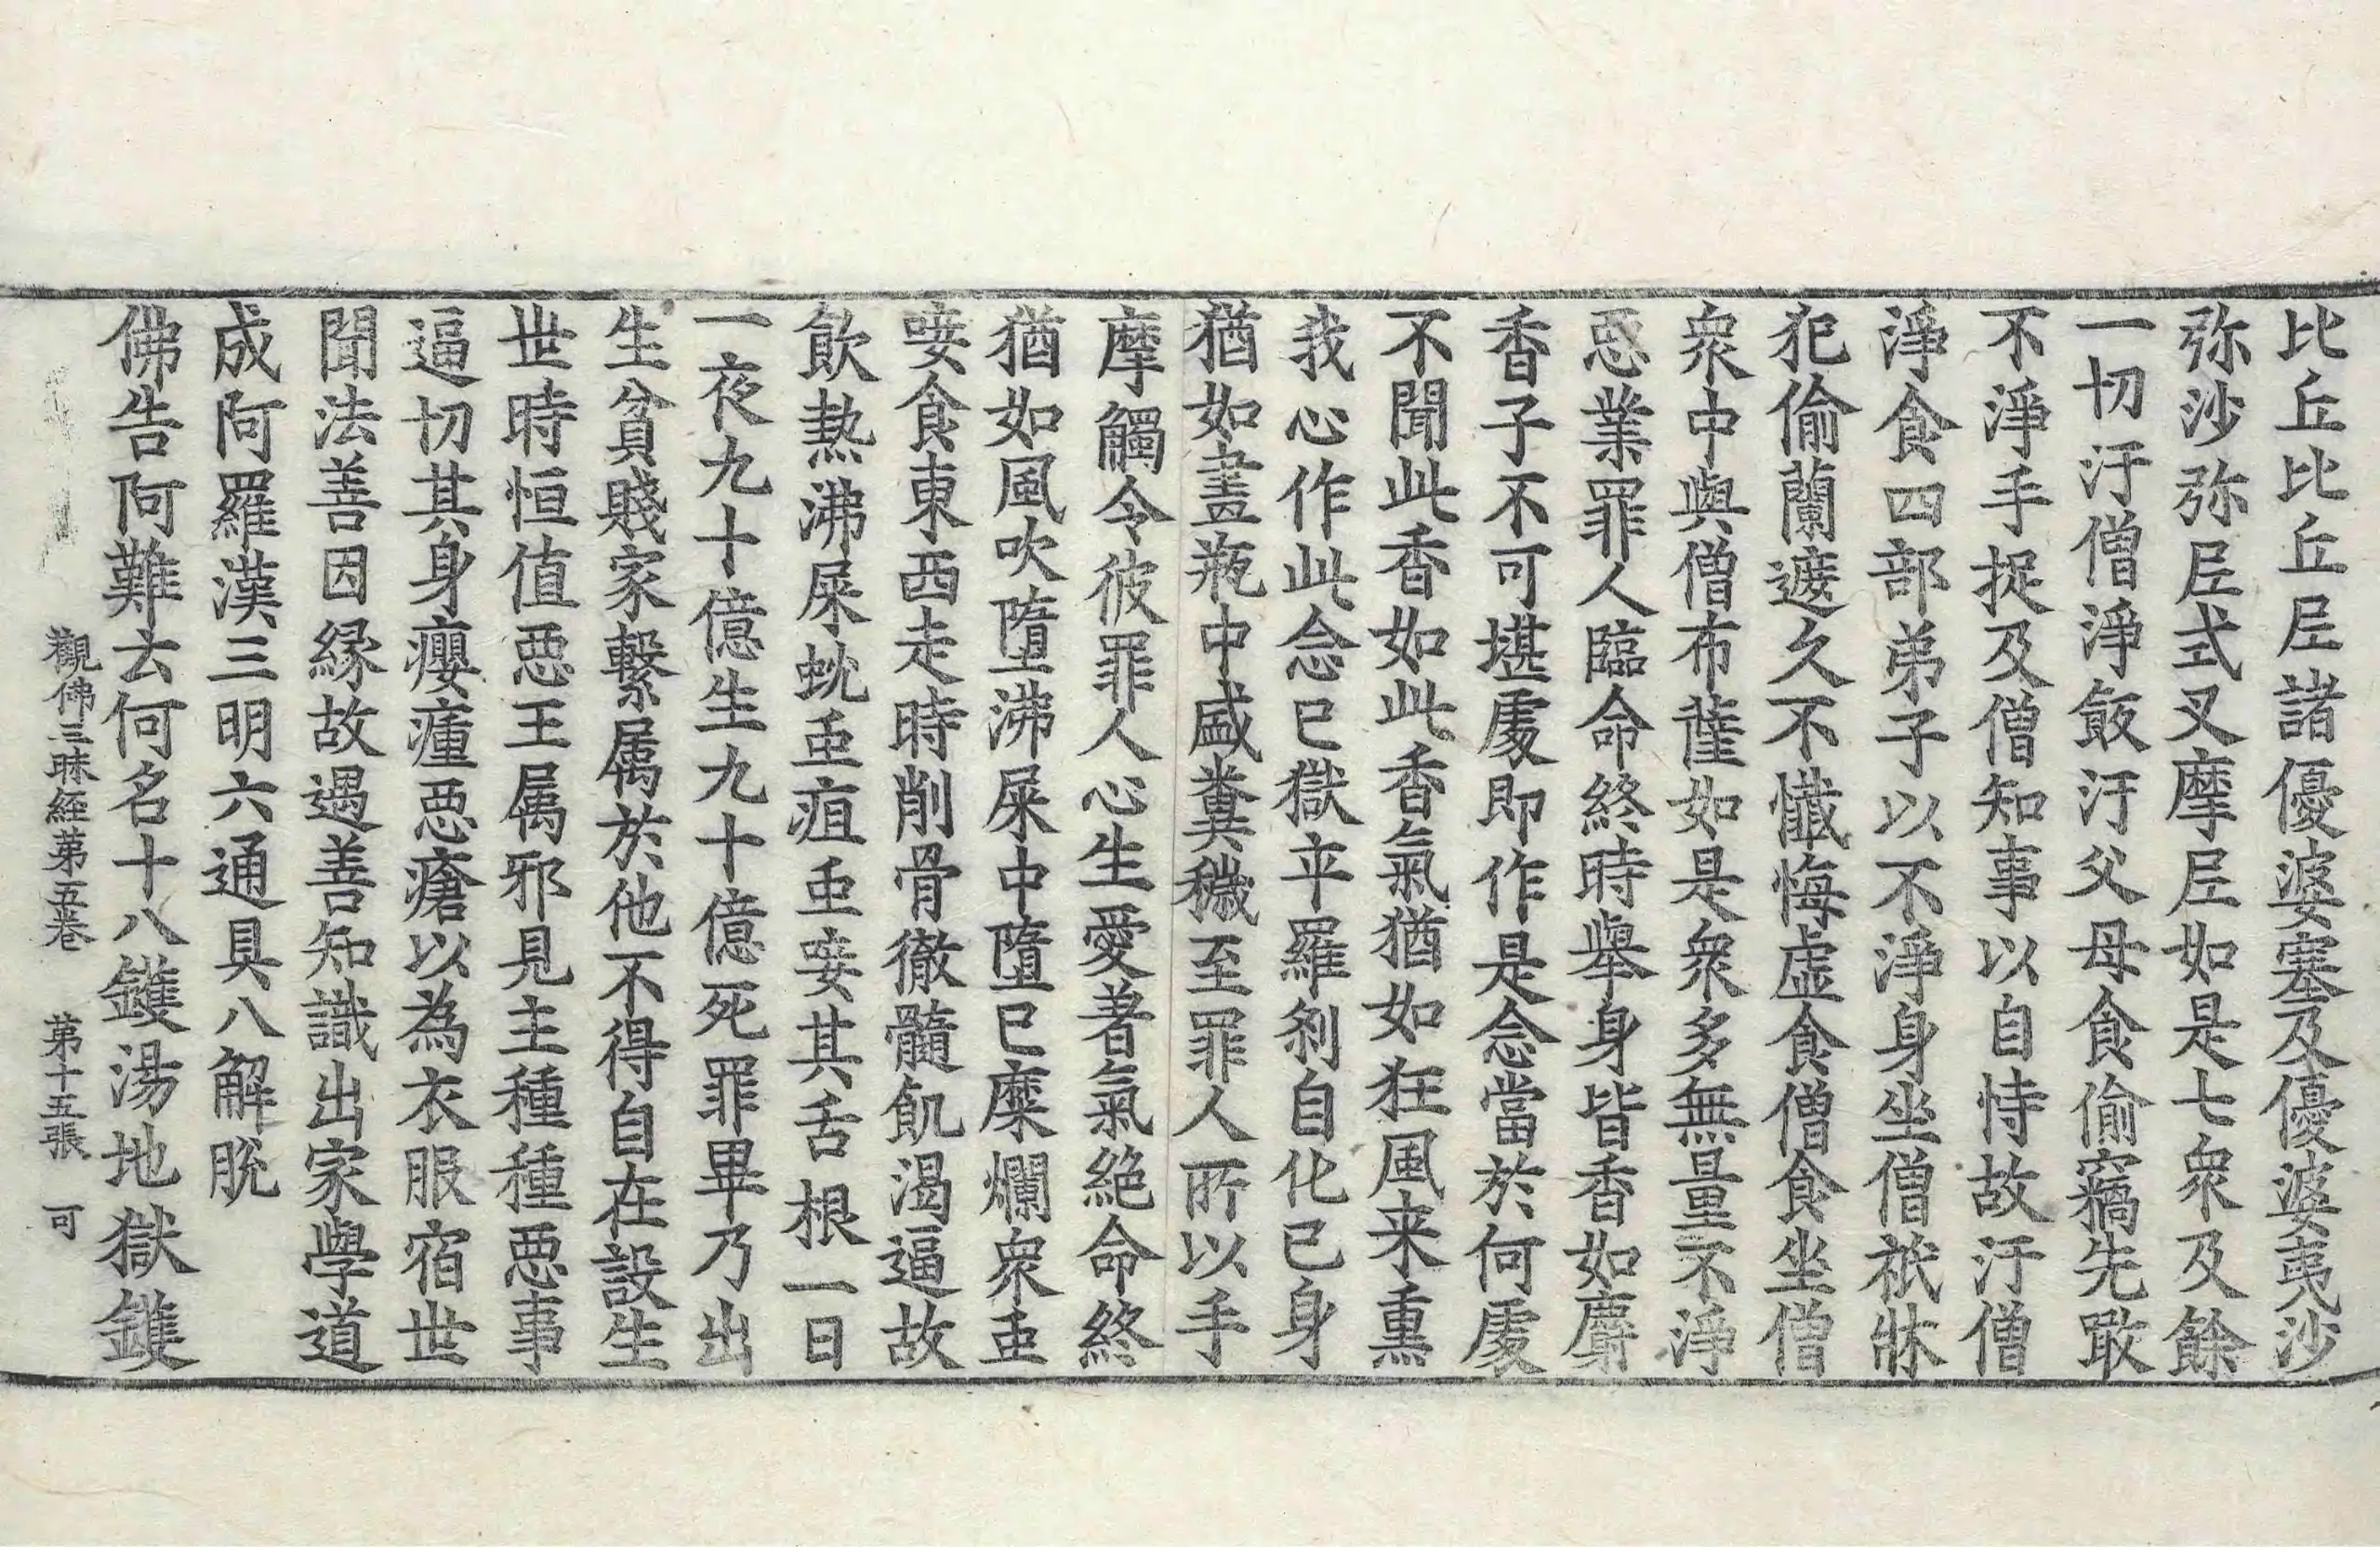 比丘比丘尼諸優婆塞及優婆夷沙
弥沙弥尼式叉摩尼如是七衆及餘
一切汙僧淨飯汙父母食偷竊先敢
不淨手捉及僧知事以自恃故汙僧
淨食四部弟子以不淨身坐僧祇牀
犯偷蘭遮久不懺悔虛食僧食坐僧
衆中與僧布薩如是衆多無量不淨
惡業罪人臨命終時舉身皆香如麝
香子不可堪處即作是念當於何處
不聞此香如此香氣猶如狂風来熏
我心作此念已獄卒羅剎自化己身
猶如畫瓶中盛糞穢至罪人所以手
摩觸令彼罪人心生愛著氣絶命終
猶如風吹墮沸屎中墮已糜爛衆虫
唼食東西走時削骨徹髓飢渴逼故
飲熱沸屎蚖虫疽虫唼其舌根一日
一夜九十億生九十億死罪畢乃出
生貧賤家繫属於他不得自在設生
丗時恒值惡王属邪見主種種惡事
逼切其身癭瘇惡瘡以為衣服宿世
聞法善因縁故遇善知識出家學道
成阿羅漢三明六通具八解脫
佛告阿難云何名十八鑊湯地獄鑊
觀佛三昧經苐五卷 苐十五張 可